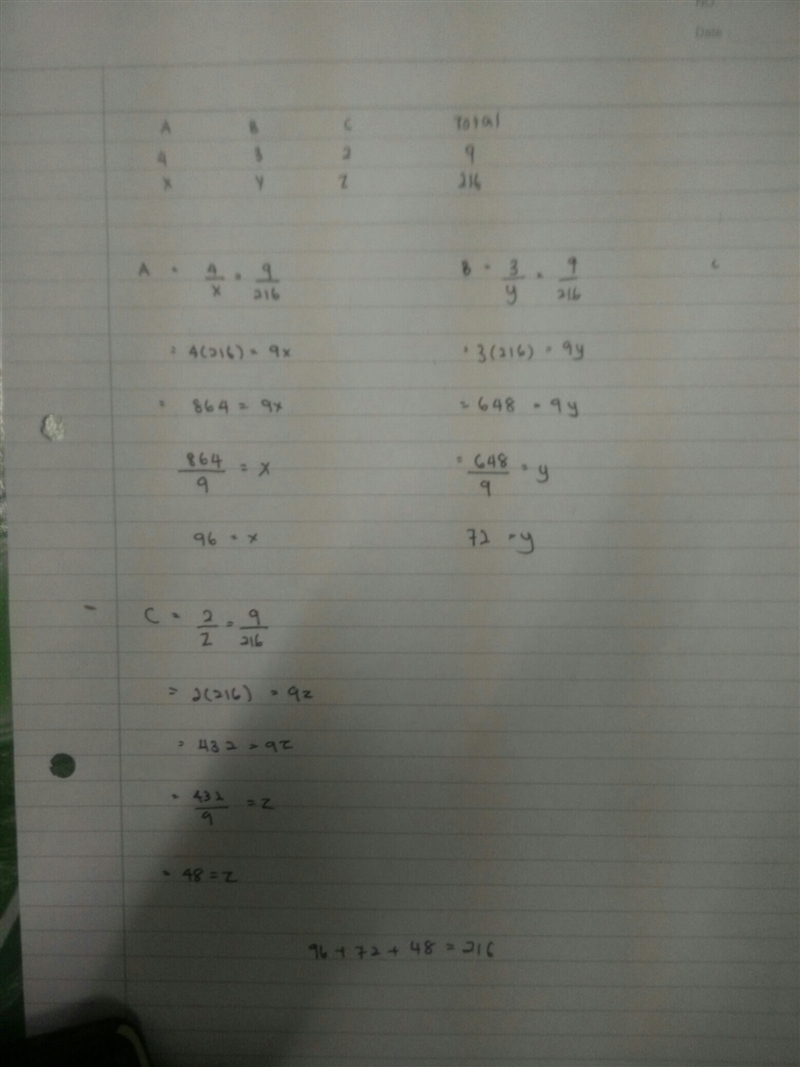 NO.
Date
A B C Total
4 3 2 9
x y z 216
A = 4/x = 9/216
B = 3/y = 9/216
c
= 4(216) = 9x
= 3(216) = 9y
= 864 = 9x
= 648 = 9y
864/9 = x
= 648/9 = y
96 = x
72 = y
- C = 2/z = 9/216
= 2(216) = 9z
= 432 = 9z
= 432/9 = z
= 48 = z
96 + 72 + 48 = 216